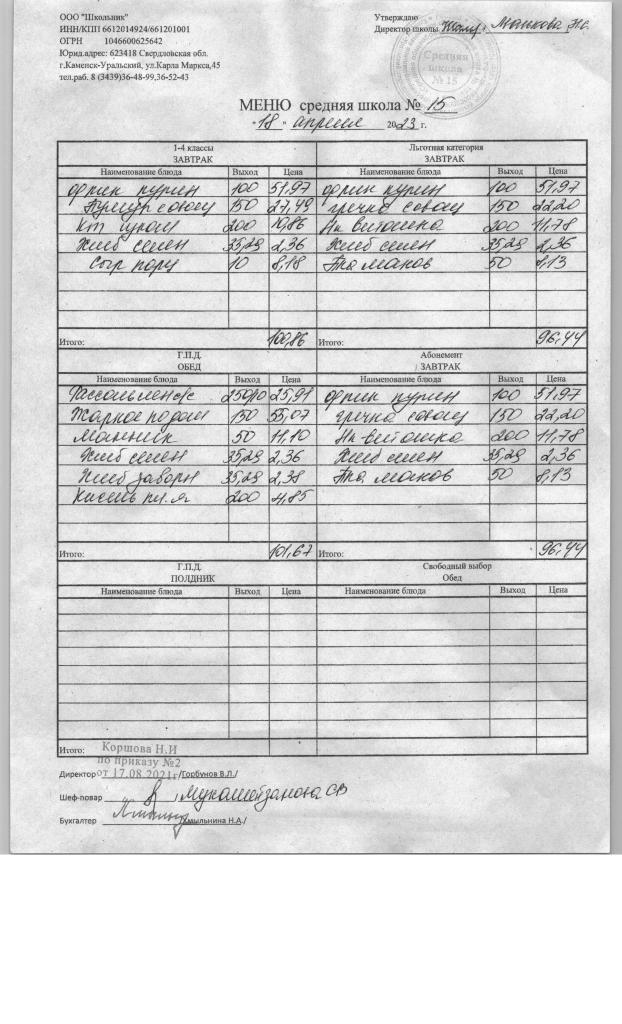 ООО "Школьник"
ИНН/КПП 6612014924/661201001
ОГРН 1046600625642
Юрид.адрес: 623418 Свердловская обл.
г.Каменск-Уральский, ул.Карла Маркса,45
тел.раб. 8 (3439)36-48-99,36-52-43
Утверждаю
Директор школы
Средняя
школа
№ 15
МЕНЮ средняя школа № 15
"18" апреля 2023 г.
1-4 классы
ЗАВТРАК
Льготная категория
ЗАВТРАК
Наименование блюда Выход Цена Наименование блюда Выход Цена
100 51,97 100 51,97
150 27,49 гречка 150 22,20
200 10,86 200 11,78
Хлеб 35,29 2,36 Хлеб 35,29 2,36
Сыр порц 10 8,18 50 8,13
Итого: 100,86 Итого: 96,44
Г.П.Д.
ОБЕД
Абонемент
ЗАВТРАК
Наименование блюда Выход Цена Наименование блюда Выход Цена
250/10 25,91 100 51,97
Жаркое по дом 150 55,07 гречка 150 22,20
Манник 50 11,10 200 11,78
Хлеб 35,29 2,36 Хлеб 35,29 2,36
Хлеб заварн 35,29 2,38 50 8,13
Кисель пл.я 200 4,85
Итого: 101,67 Итого: 96,44
Г.П.Д.
ПОЛДНИК
Свободный выбор
Обед
Наименование блюда Выход Цена Наименование блюда Выход Цена
Итого:
Коршова Н.И
по приказу №2
от 17.08.2021г
Директор /Горбунов В.Л./
Шеф-повар
Бухгалтер /Хмыльнина Н.А./